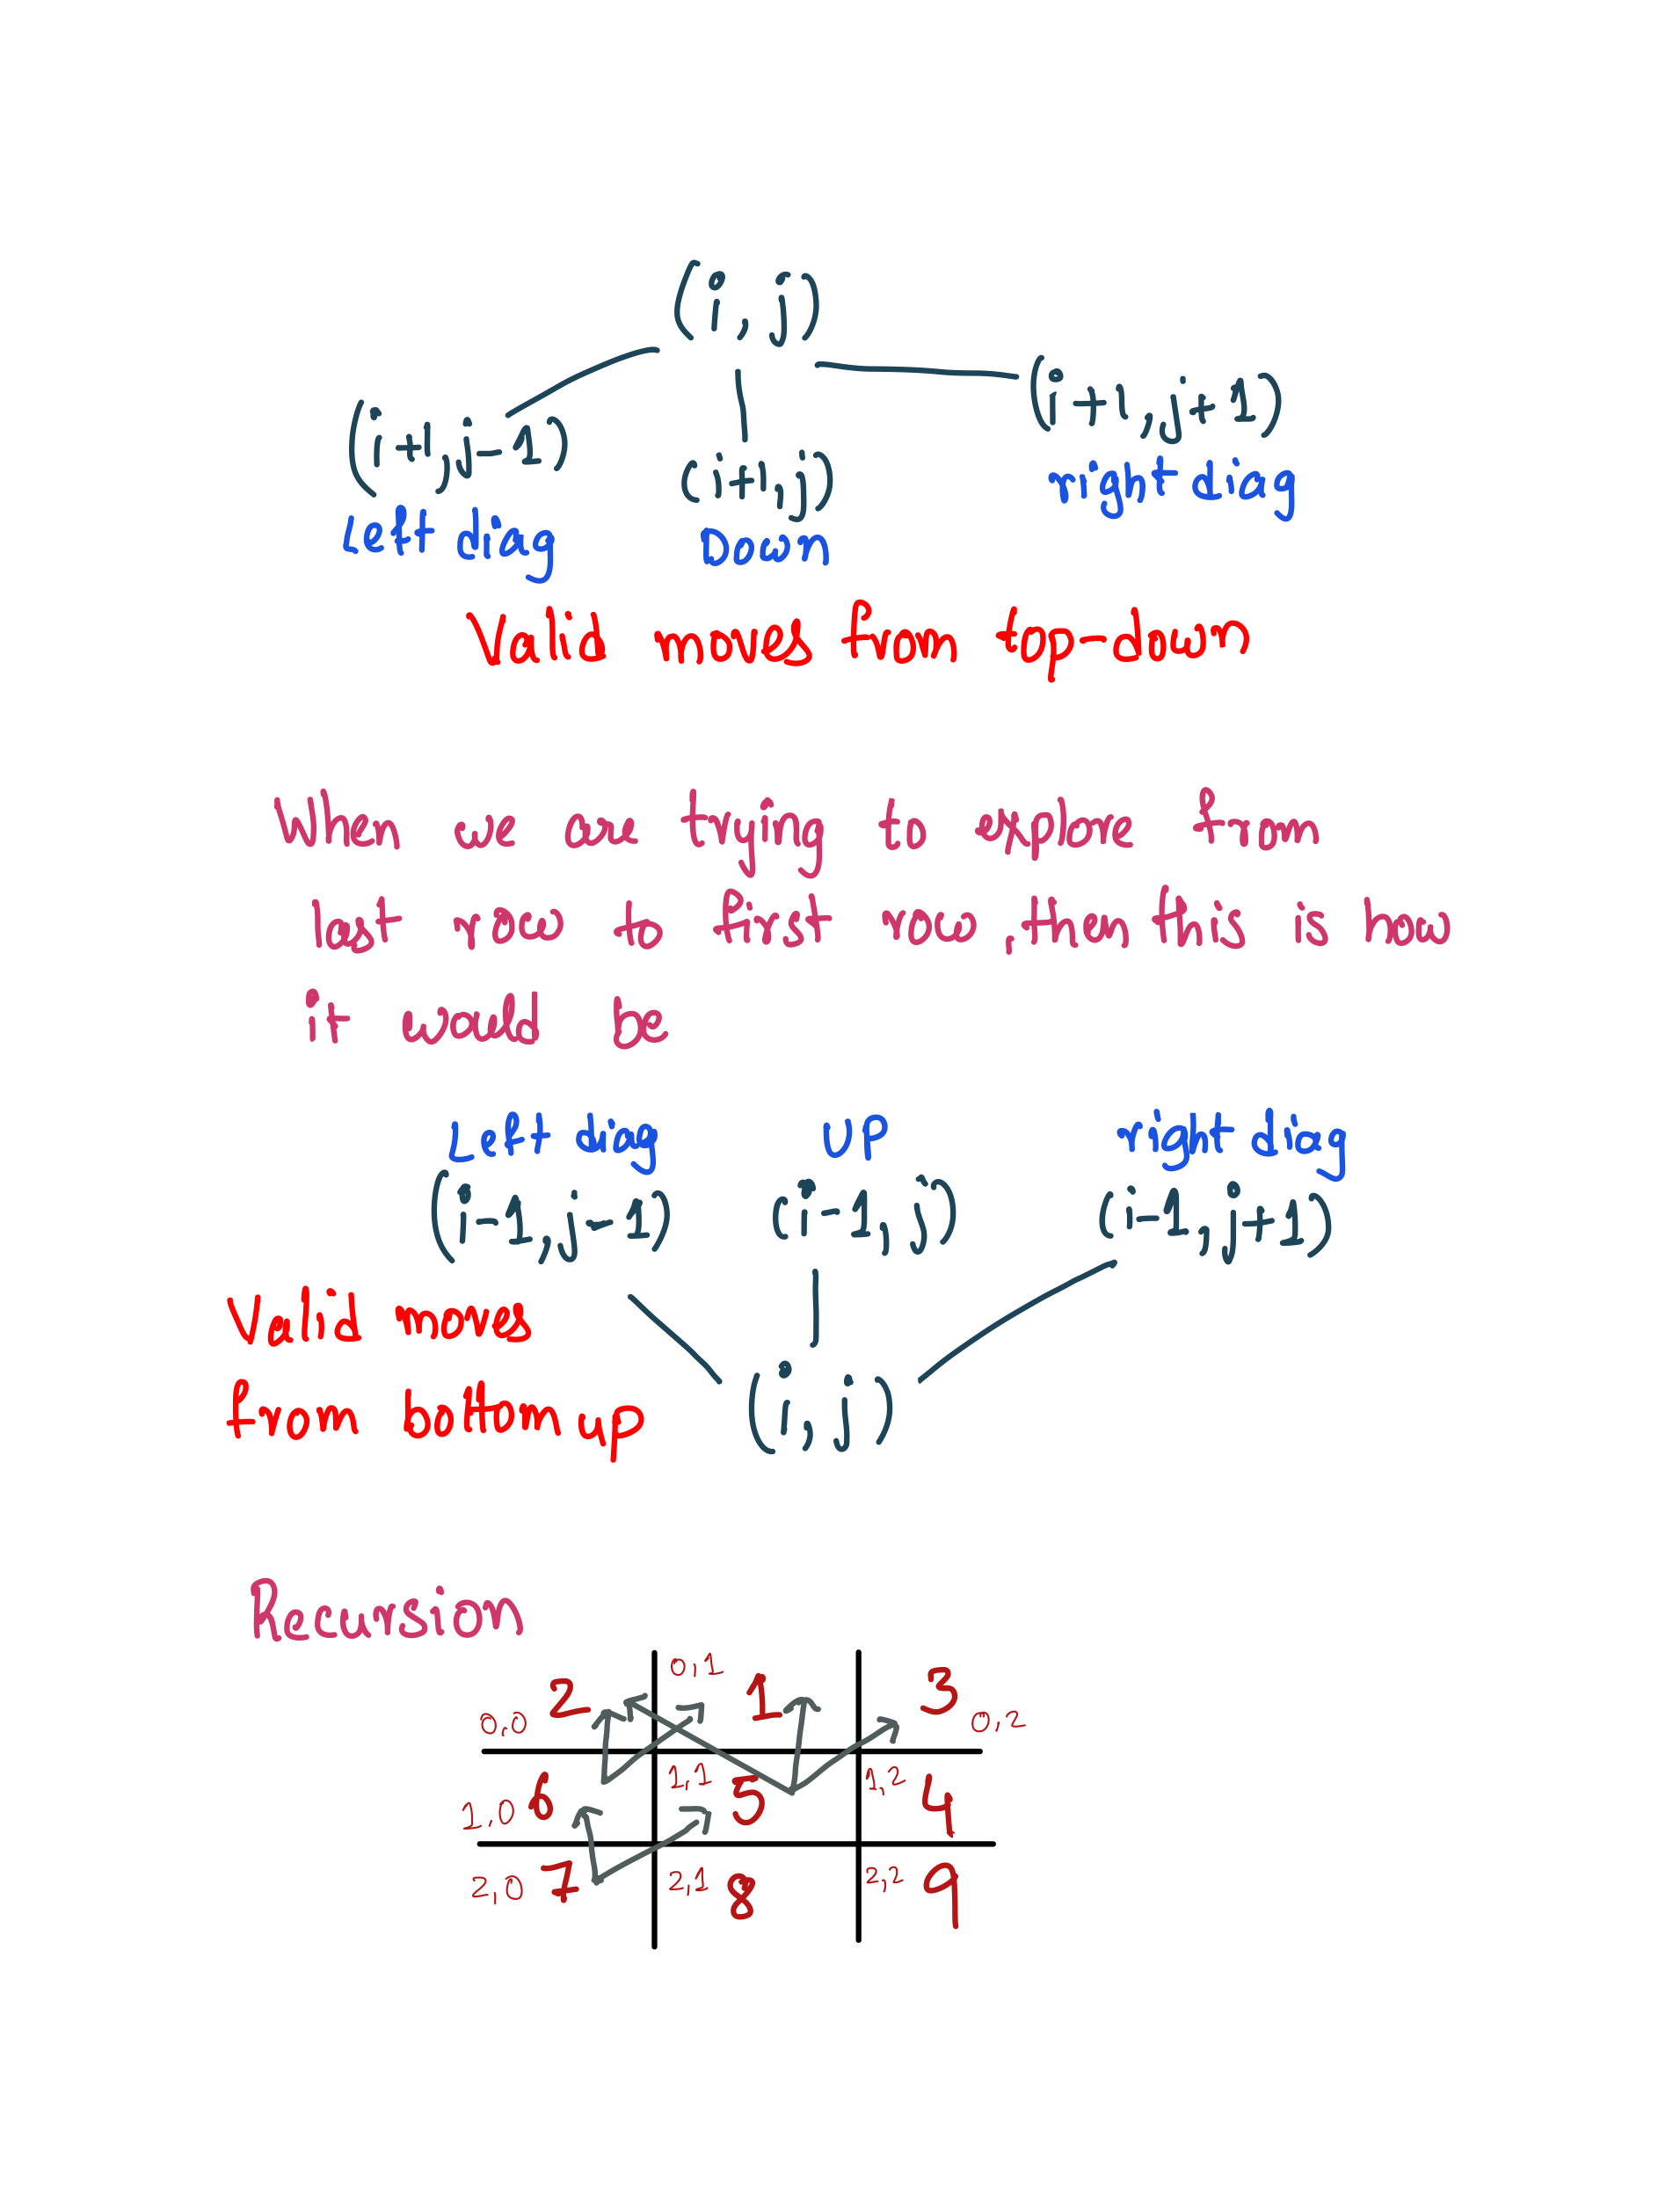 (i, j)
(i+1, j-1) (i+1, j) (i+1, j+1)
Left diag Down right diag
Valid moves from top-down
When we are trying to explore from
last row to first row, then this is how
it would be
Left diag UP right diag
(i-1, j-1) (i-1, j) (i-1, j+1)
Valid moves
from bottom up
(i, j)
Recursion
0,0 2 0,1 1 3 0,2
1,0 6 1,1 5 1,2 4
2,0 7 2,1 8 2,2 9